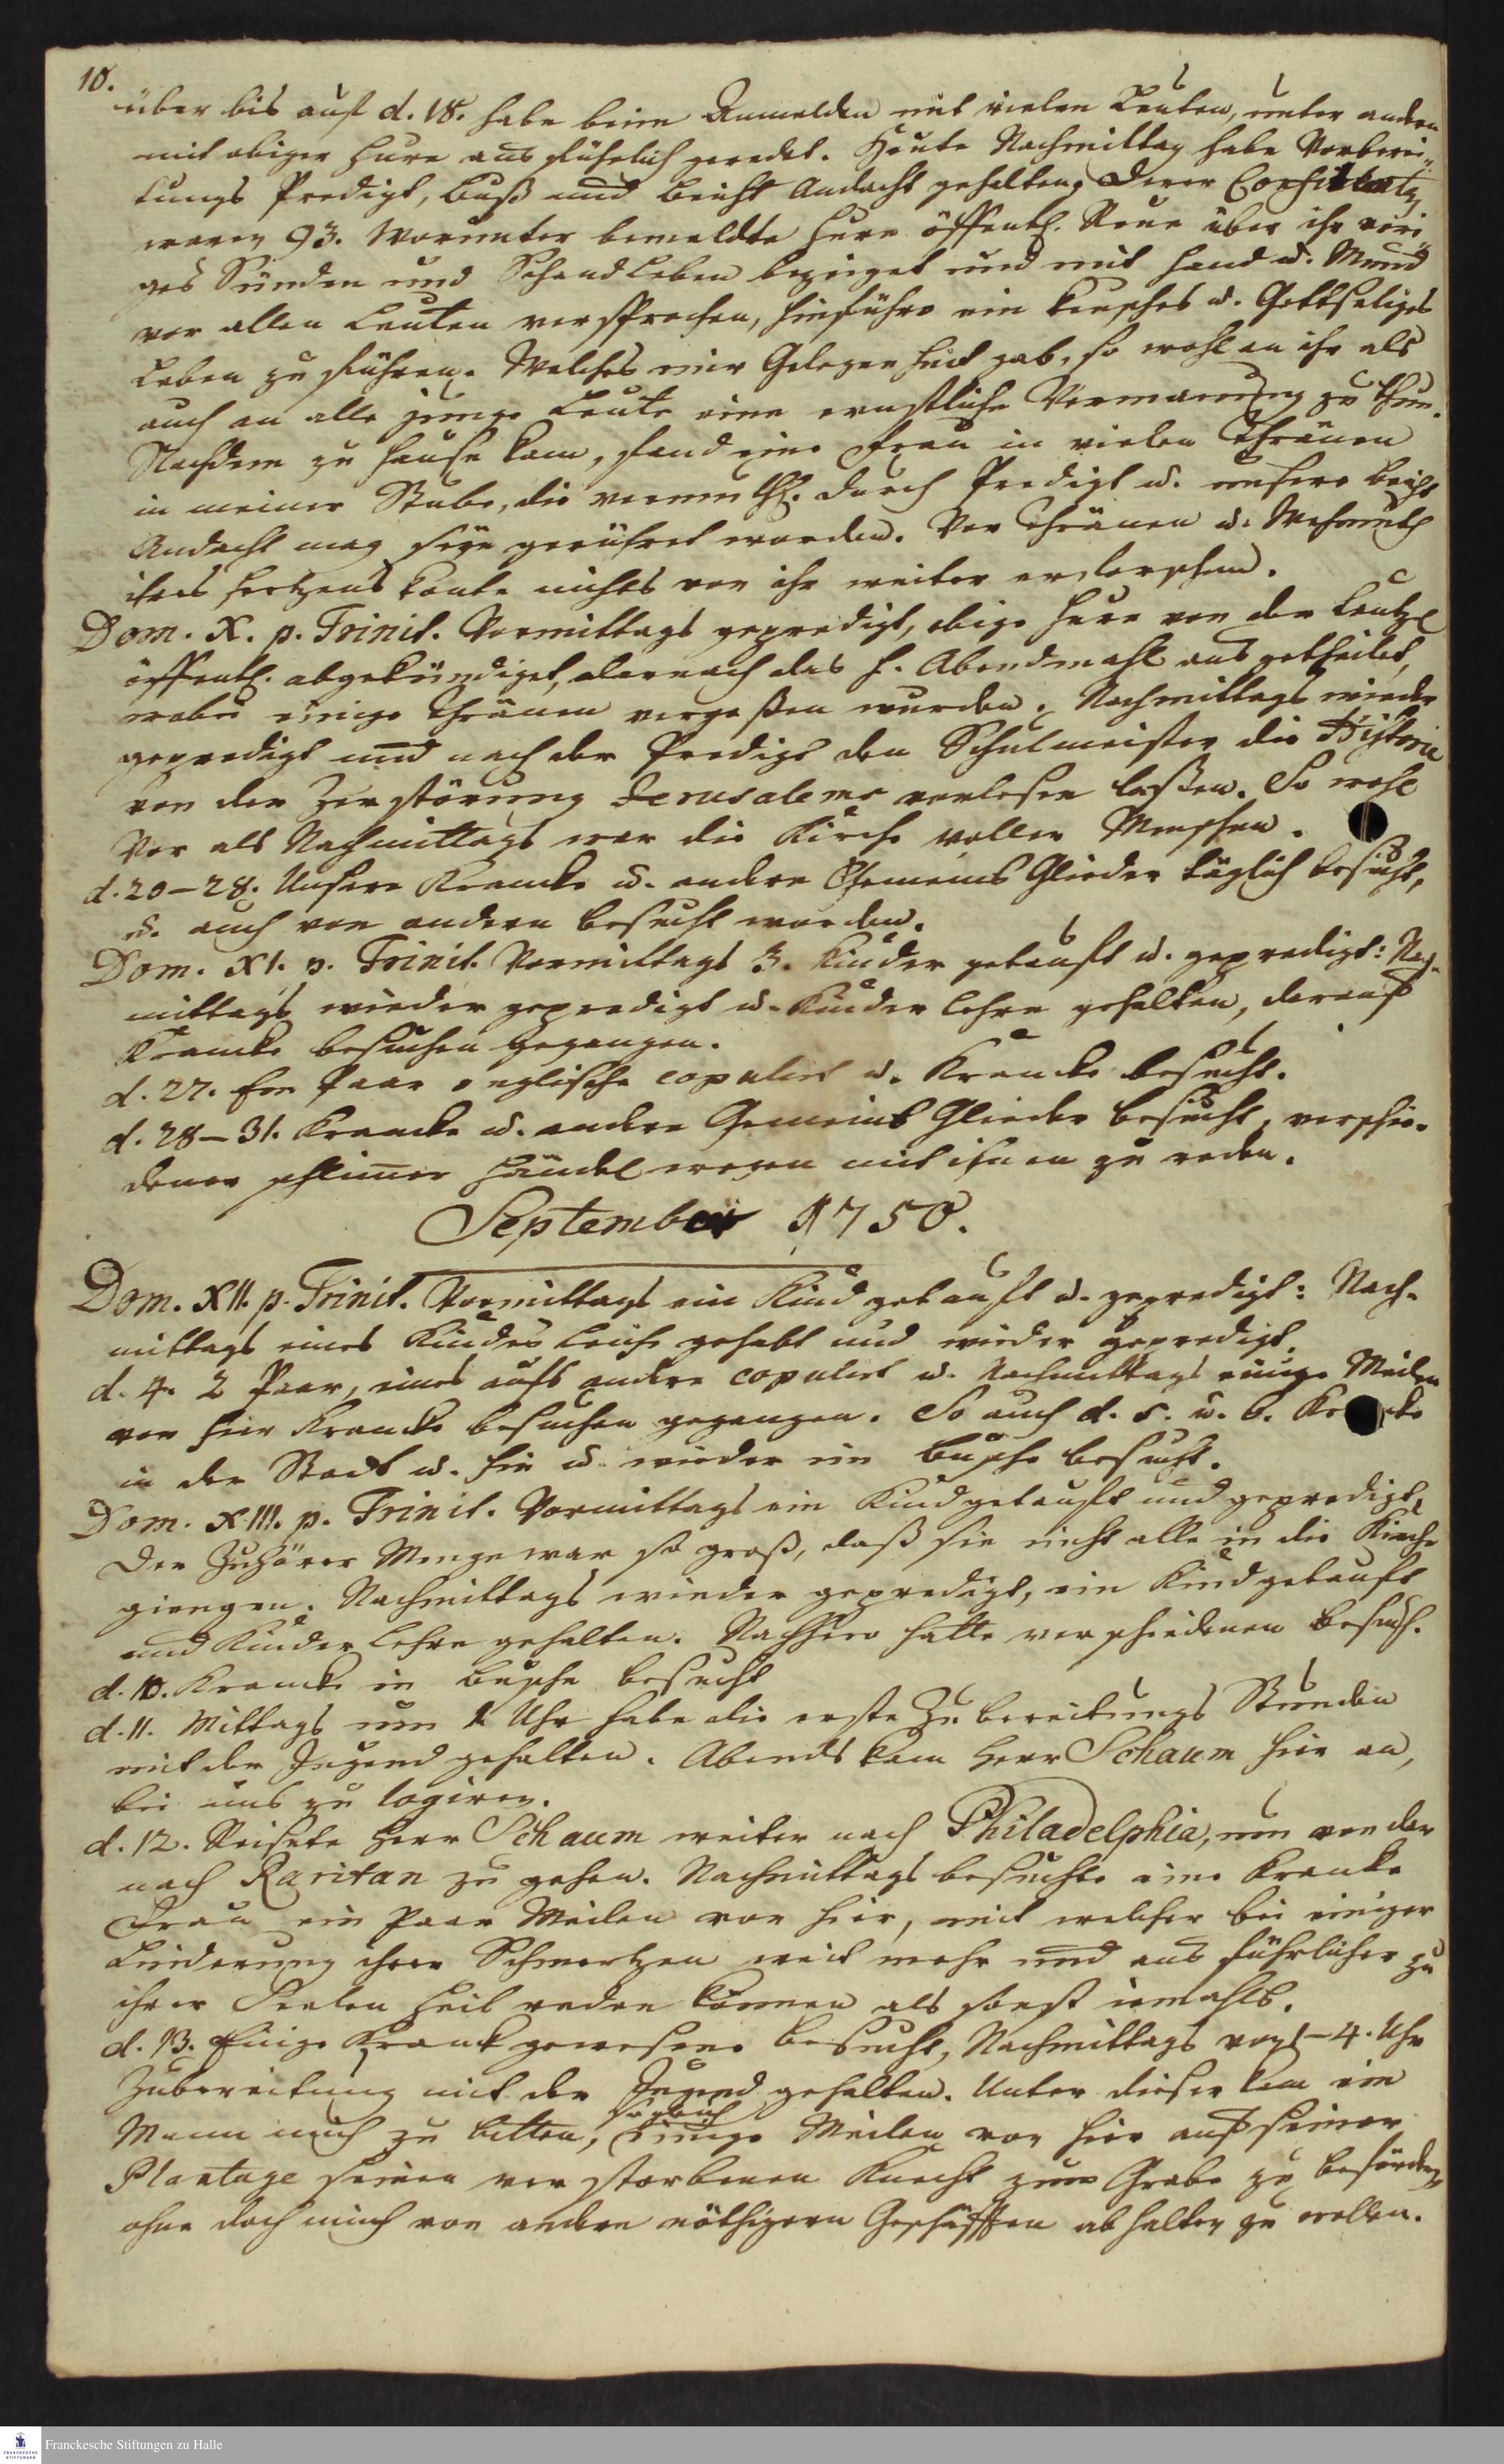 10.
über bis auf d. 18. habe beim Anmelden mit vielen Leuten, unter andern
mit obiger Hure ausführlich geredet. Heute Nachmittag habe Vorberei-
tungs Predigt, Buß und Beicht Andacht gehalten, derer Confitenten
waren 93. Worunter bemeldte Hure öffentl. Reue über ihr vori
ges Sünden und Schandleben bezeiget und mit Hand u. Mund
vor allen Leuten versprochen, hinführo ein keusches u. Gottseliges
Leben zu führen. Welches mir Gelegenheit gab, so wohl an ihr als
auch an alle junge Leute eine ernstliche Vermanung zu thun.
Nachdem zu Hause kam, fand eine Frau in vielen Thränen
in meiner Stube, die vermuthl. durch Predigt u. unsere Beicht
Andacht mag seÿn gerühret worden. Vor Thränen u. Wehmuth
ihres Hertzens konte nichts von ihr weiter erforschen.
Dom. X. p. Trinit. Vormittags gepredigt, obige Hure von der Cantzel
öffentl. abgekündiget, darnach das H. Abendmahl ausgetheilet,
wobei einige Thränen vergoßen wurden. Nachmittags wieder
gepredigt und nach der Predigt den Schulmeister die Historie
von der Zerstörung Jerusalems vorlesen laßen. So wohl
Vor als Nachmittags war die Kirche voller Menschen.
d. 20-28. Unsere Krancke u. andere Gemeins Glieder täglich besucht,
u. auch von andern besucht worden.
Dom. XI. p. Trinit. Vormittags 3. Kinder getauft u. gepredigt: Nach-
mittags wieder gepredigt u. Kinder Lehre gehalten, darauf
Krancke besuchen gegangen.
d. 27. Ein Paar englische copulirt u. Krancke besucht.
d. 28-31. Krancke u. andere Gemeins Glieder besucht, verschie-
dener schlimer Händel wegen mit ihnen zu reden.
September 1750.
Dom. XII. p. Trinit. Vormittags ein Kind getauft u. gepredigt: Nach-
mittags eines Kindes Leiche gehabt und wieder gepredigt.
d. 4. 2 Paar, eines aufs andere copulirt u. Nachmittags einige Meilen
von hier Krancke besuchen gegangen. So auch d. 5. u. 6. Krancke
in der Stadt u. hin u. wieder im Busche besucht.
Dom. XIII. p. Trinit. Vormittags ein Kind getauft und gepredigt,
Der Zuhörer Menge war so groß, daß sie nicht alle in die Kirche
giengen. Nachmittags wieder gepredigt, ein Kind getauft
und Kinder Lehre gehalten. Nachhero hatte verschiedenen Besuch.
d. 10. Krancke in Busche besucht
d. 11. Mittags um 1 Uhr habe die erste Zubereitungs Stunden
mit der Jugend gehalten. Abends kam Herr Schaum hier an,
bei uns zu logiren.
d. 12. Reisete Herr Schaum weiter nach Philadelphia, um von dar
nach Raritan zu gehen. Nachmittags besuchte eine Krancke
Frau ein Paar Meilen von hier, mit welcher bei einiger
Linderung ihrer Schmertzen weit mehr und ausführlicher zu
ihrer Seelen Heil reden können als sonst iemahls.
d. 13. Einige Kranck gewesene besucht, Nachmittags von 1-4. Uhr
Zubereitung mit der Jugend gehalten. Unter dieser kam ein
sogleich
Mann mich zu bitten, einige Meilen von hier auf seiner
Plantage seinen verstorbenen Knecht zum Grabe zu befördern,
ohne doch mich von andern nöthigern Geschäfften abhalten zu wollen.
Franckesche Stiftungen zu Halle